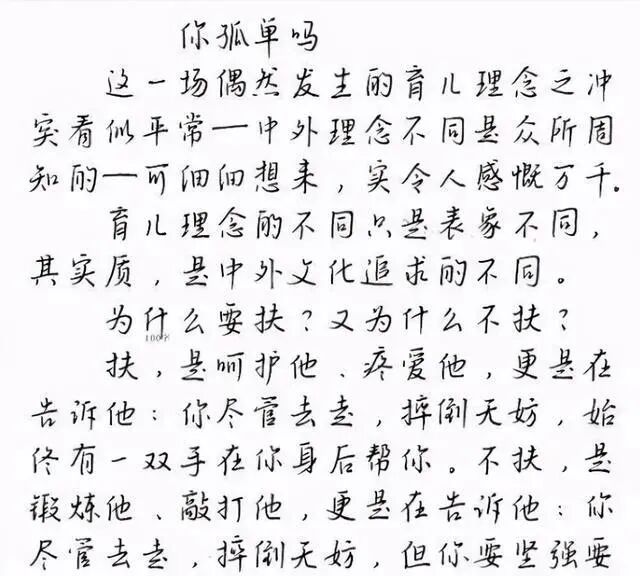 你孤单吗
这一场偶然发生的育儿理念之冲
突看似平常一中外理念不同是众所周
知的一可细细想来，实令人感慨万千。
育儿理念的不同只是表象不同，
其实质，是中外文化追求的不同。
为什么要扶？又为什么不扶？
100%
扶，是呵护他、疼爱他，更是在
告诉他：你尽管去走，摔倒无妨，始
终有一双手在你身后帮你。不扶，是
锻炼他、敲打他，更是在告诉他：你
尽管去走，摔倒无妨，但你要坚强要